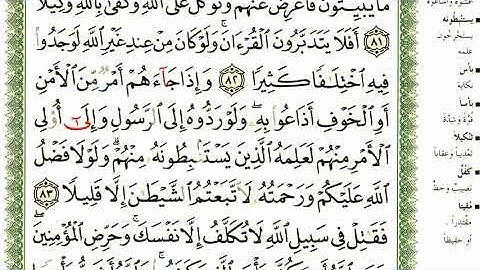 مَا يُبَيِّتُونَ فَأَعْرِضْ عَنْهُمْ وَتَوَكَّلْ عَلَى ٱللَّهِ وَكَفَىٰ بِٱللَّهِ وَكِيلًا
٨١ أَفَلَا يَتَدَبَّرُونَ ٱلْقُرْءَانَ ۚ وَلَوْ كَانَ مِنْ عِندِ غَيْرِ ٱللَّهِ لَوَجَدُوا۟
فِيهِ ٱخْتِلَٰفًا كَثِيرًا ٨٢ وَإِذَا جَآءَهُمْ أَمْرٌ مِّنَ ٱلْأَمْنِ
أَوِ ٱلْخَوْفِ أَذَاعُوا۟ بِهِۦ ۖ وَلَوْ رَدُّوهُ إِلَى ٱلرَّسُولِ وَإِلَىٰٓ أُو۟لِى
ٱلْأَمْرِ مِنْهُمْ لَعَلِمَهُ ٱلَّذِينَ يَسْتَنۢبِطُونَهُۥ مِنْهُمْ ۗ وَلَوْلَا فَضْلُ
ٱللَّهِ عَلَيْكُمْ وَرَحْمَتُهُۥ لَٱتَّبَعْتُمُ ٱلشَّيْطَٰنَ إِلَّا قَلِيلًا ٨٣
فَقَٰتِلْ فِى سَبِيلِ ٱللَّهِ لَا تُكَلَّفُ إِلَّا نَفْسَكَ ۚ وَحَرِّضِ ٱلْمُؤْمِنِينَ ۖ
يستنبطونه
يستخرجون
علمه
بأس
نكاية
بأسا
قوّة وشدّة
تنكيلا
تعذيباً وعقاباً
كفل
نصيب وحظ
مقيتا
مقتدراً
أو حفيظاً